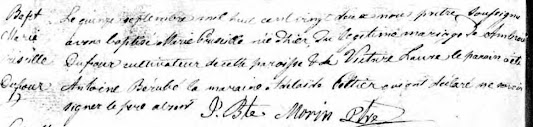 Bapt Le quinze septembre mil huit cent vingt deux nous prêtre soussigné
Marie avons baptisé Marie née hier du légitime mariage de
Dufour cultivateur de cette paroisse & de Victoire le parrain a été
Dufour Antoine Bérubé la marraine qui ont déclaré ne savoir
signer le père absent J. Bte Morin Ptre